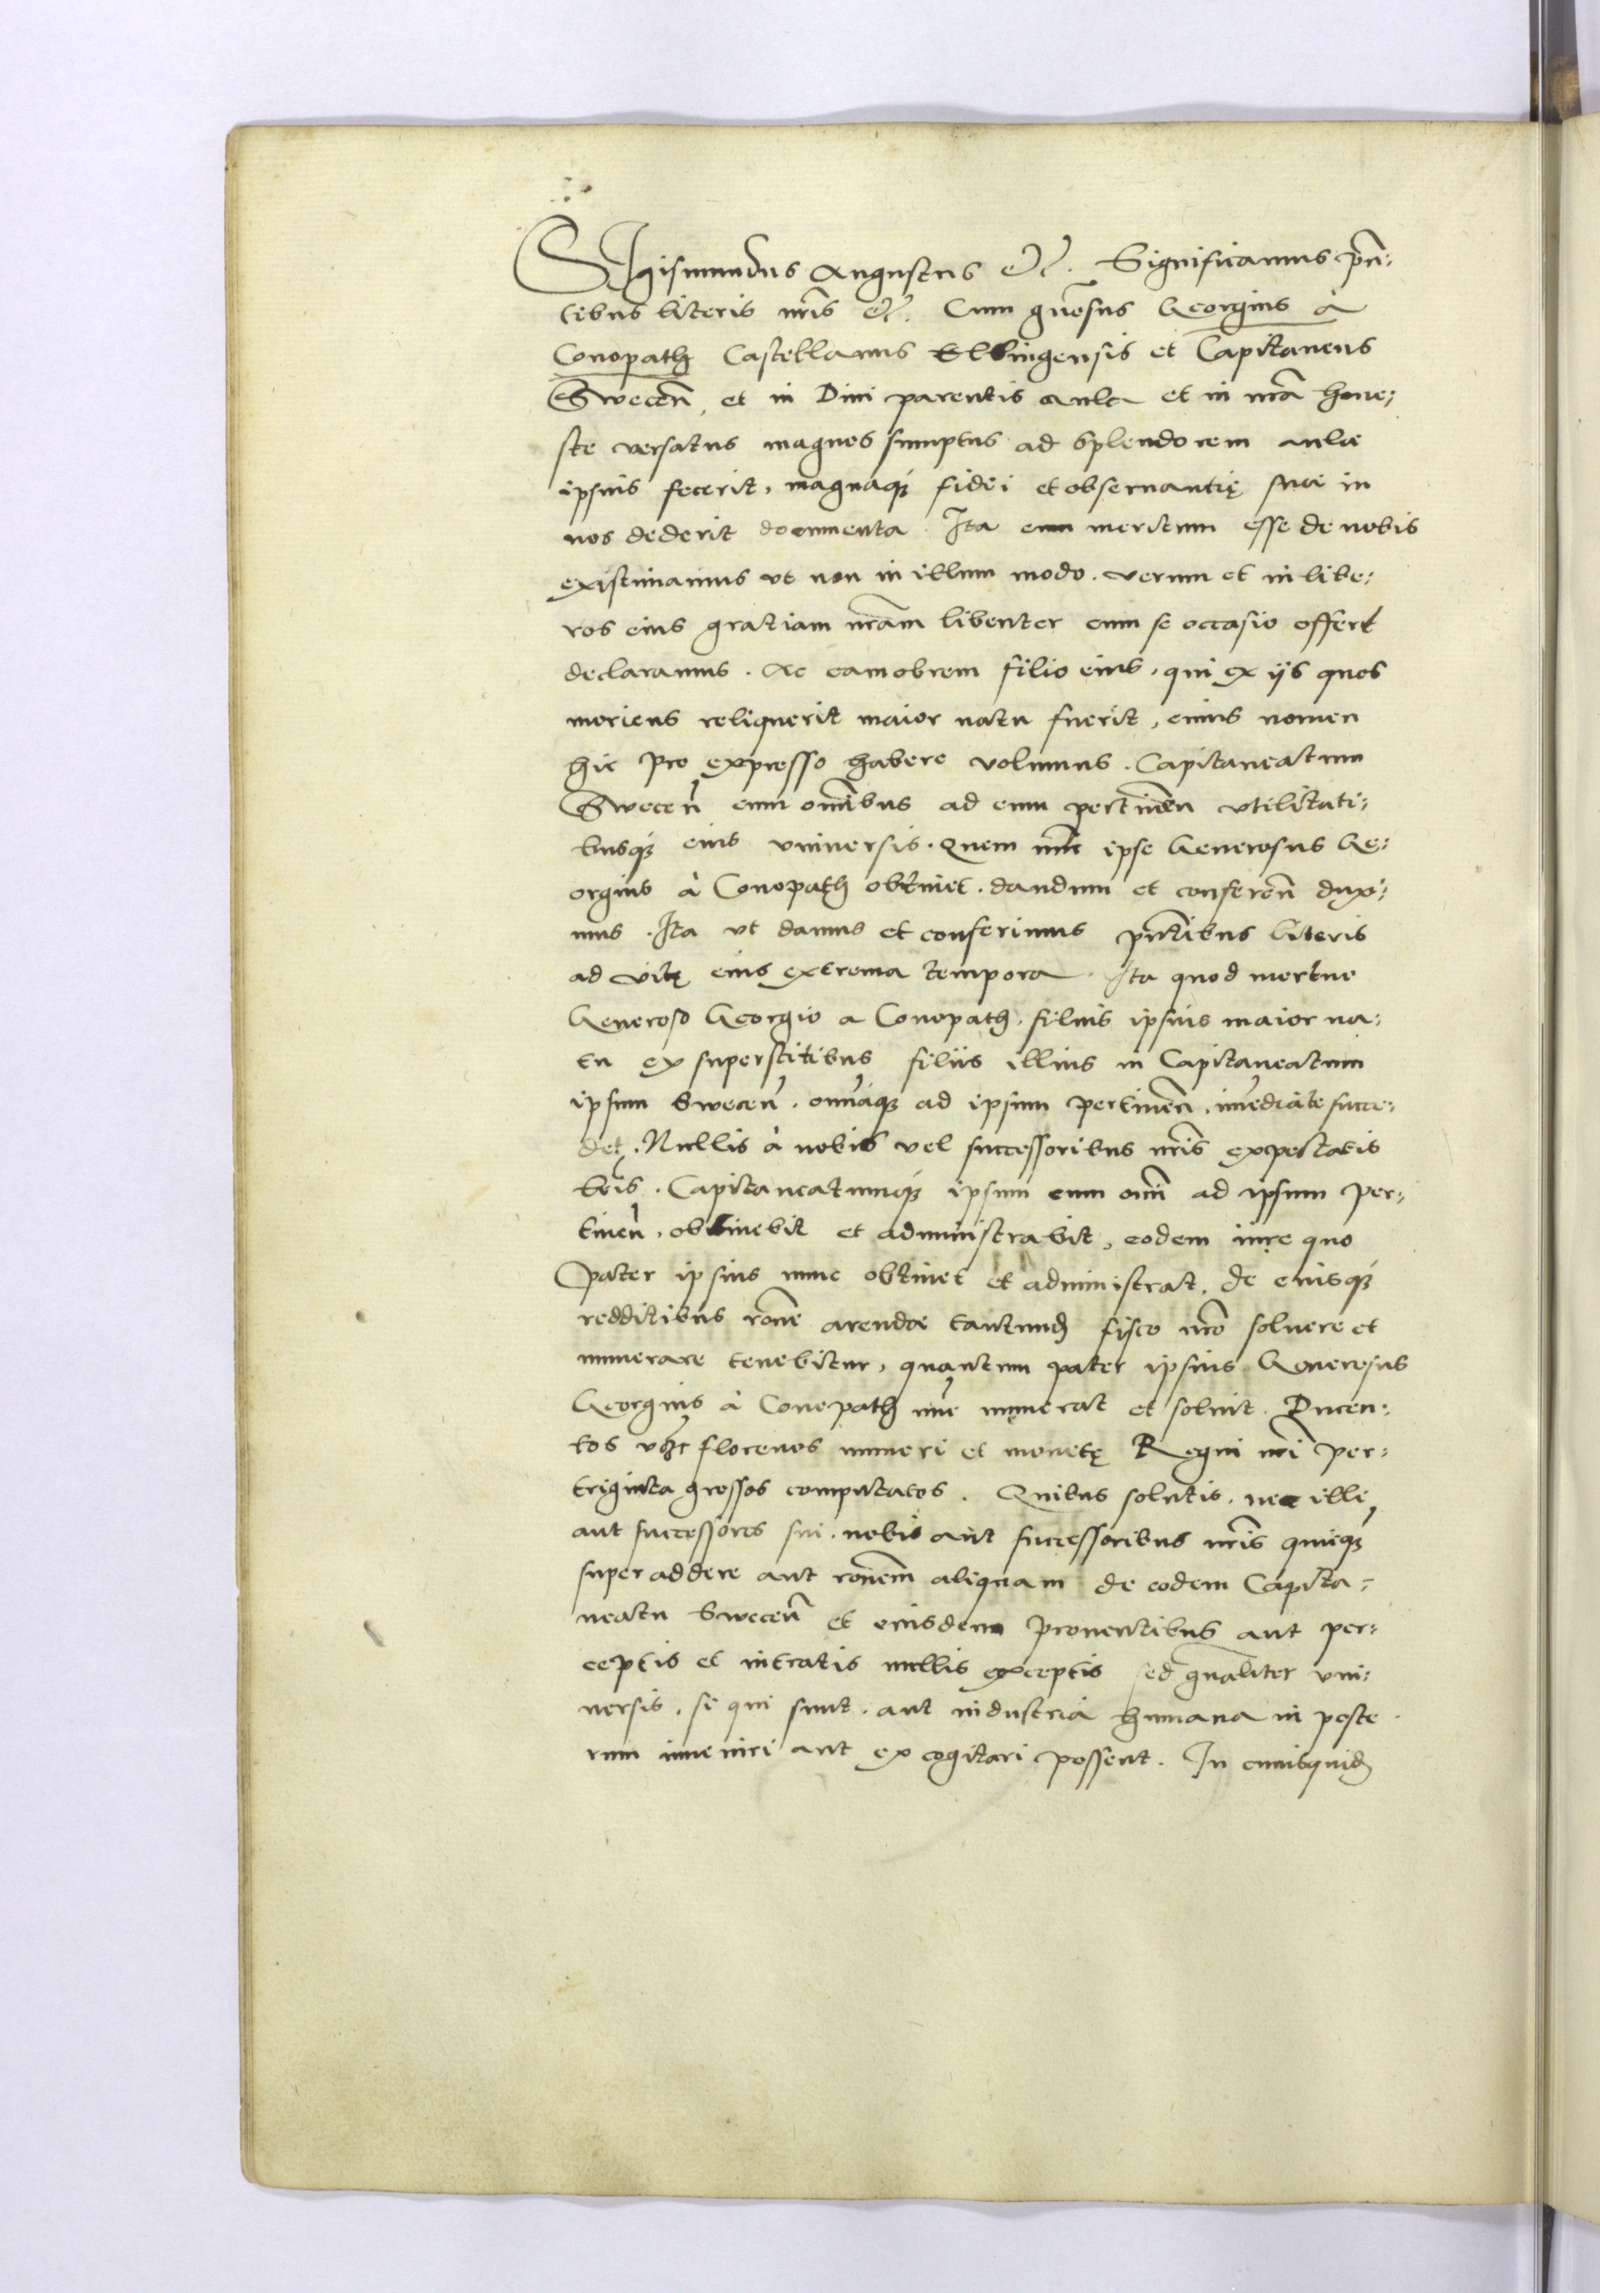 Sigismundus Augustus etc. Significamus pñ:
tibus literis nr̃is etc. Cum gñosus Georgius à
Conopath Castellanus Elbingensis et Capitaneus
Swecen̄, et in Diui parentis aula et in nr̃a hone:
ste versatus magnos sumptus ad splendorem aulæ
ipsius fecerit, magnaq₃ fidei et obseruantię suæ in
nos dederit documenta. Ita eum meritum esse de nobis
existimamus vt non in illum modo. verum et in libe:
ros eius gratiam nr̃am libenter cum se occasio offert
declaramus. Ac eam obrem filio eius, qui ex ijs quos
moriens reliquerit maior natu fuerit, cuius nomen
hic pro expresso habere volumus. Capitaneatum
Swecen̄ cum om̃ibus ad eum pertineñ vtilitati:
busq₃ eius vniuersis. quem nũc ipse Generosus Ge:
orgius à Conopath obtinet. dandum et conferen̄ duxi:
mus. Ita vt damus et conferimus pñtibus literis
ad vitę eius extrema tempora. Ita quod mortuo
Generoso Georgio a Conopath. filius ipsius maior na:
tu ex superstitibus filiis illius in Capitaneatum
ipsum Swecen̄. omniaq₃ ad ipsum pertineñ, im̃ediate succe:
det. Nullis à nobis vel successoribus nr̃is expectatis
lr̃is. Capitaneatumq₃ ipsum cum om̃i ad ipsum per:
tineñ, obtinebit et administrabit, eodem iure quo
Pater ipsius nunc obtinet et administrat. de cuiusq₃
redditibus rõne arendæ tantund̃ fisco nr̃o soluere et
numerare tenebitur, quantum pater ipsius Generosus
Georgius à Conopath nũc numerat et soluit. Ducen:
tos vꝫ florenos numeri et monetę Regni nr̃i per:
triginta grossos computatos. Quibus solutis. nec illi
aut successores sui. nobis aut successoribus nr̃is quicq₃
super addere aut rõnem aliquam de eodem Capita:
neatu Swecen̄ et eiusdem prouentibus aut per:
ceptis et intratis nullis exceptis sed gñaliter vni:
uersis, si qui sunt. aut industria humana in poste
rum inueniri aut ex cogitari possent. In cuiusquid̃